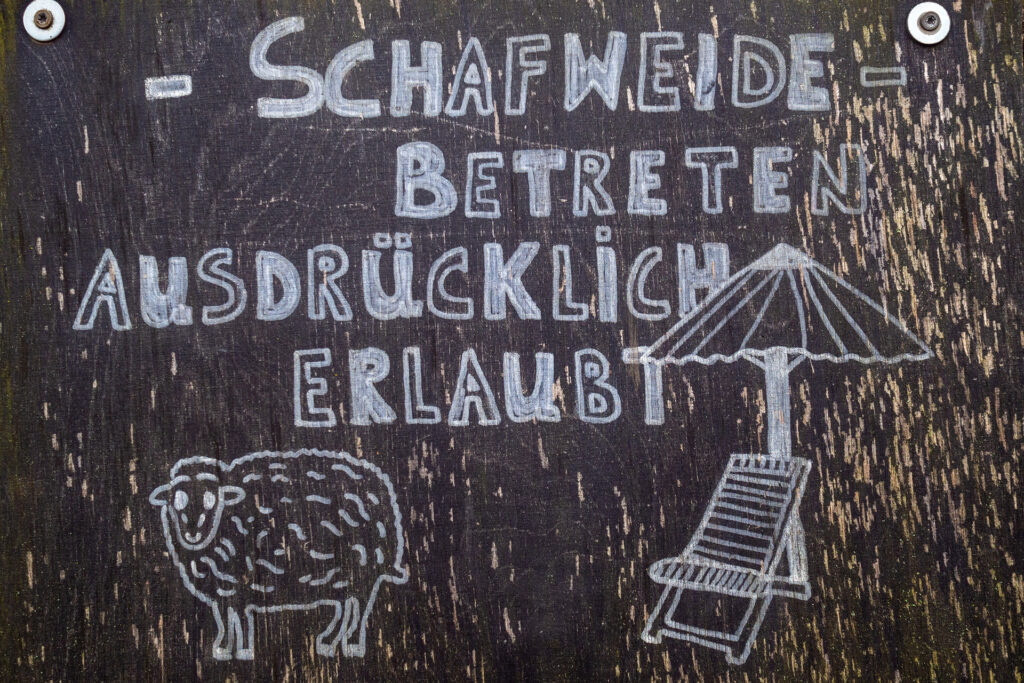 - SCHAFWEIDE -
BETRETEN
AUSDRÜCKLICH
ERLAUBT